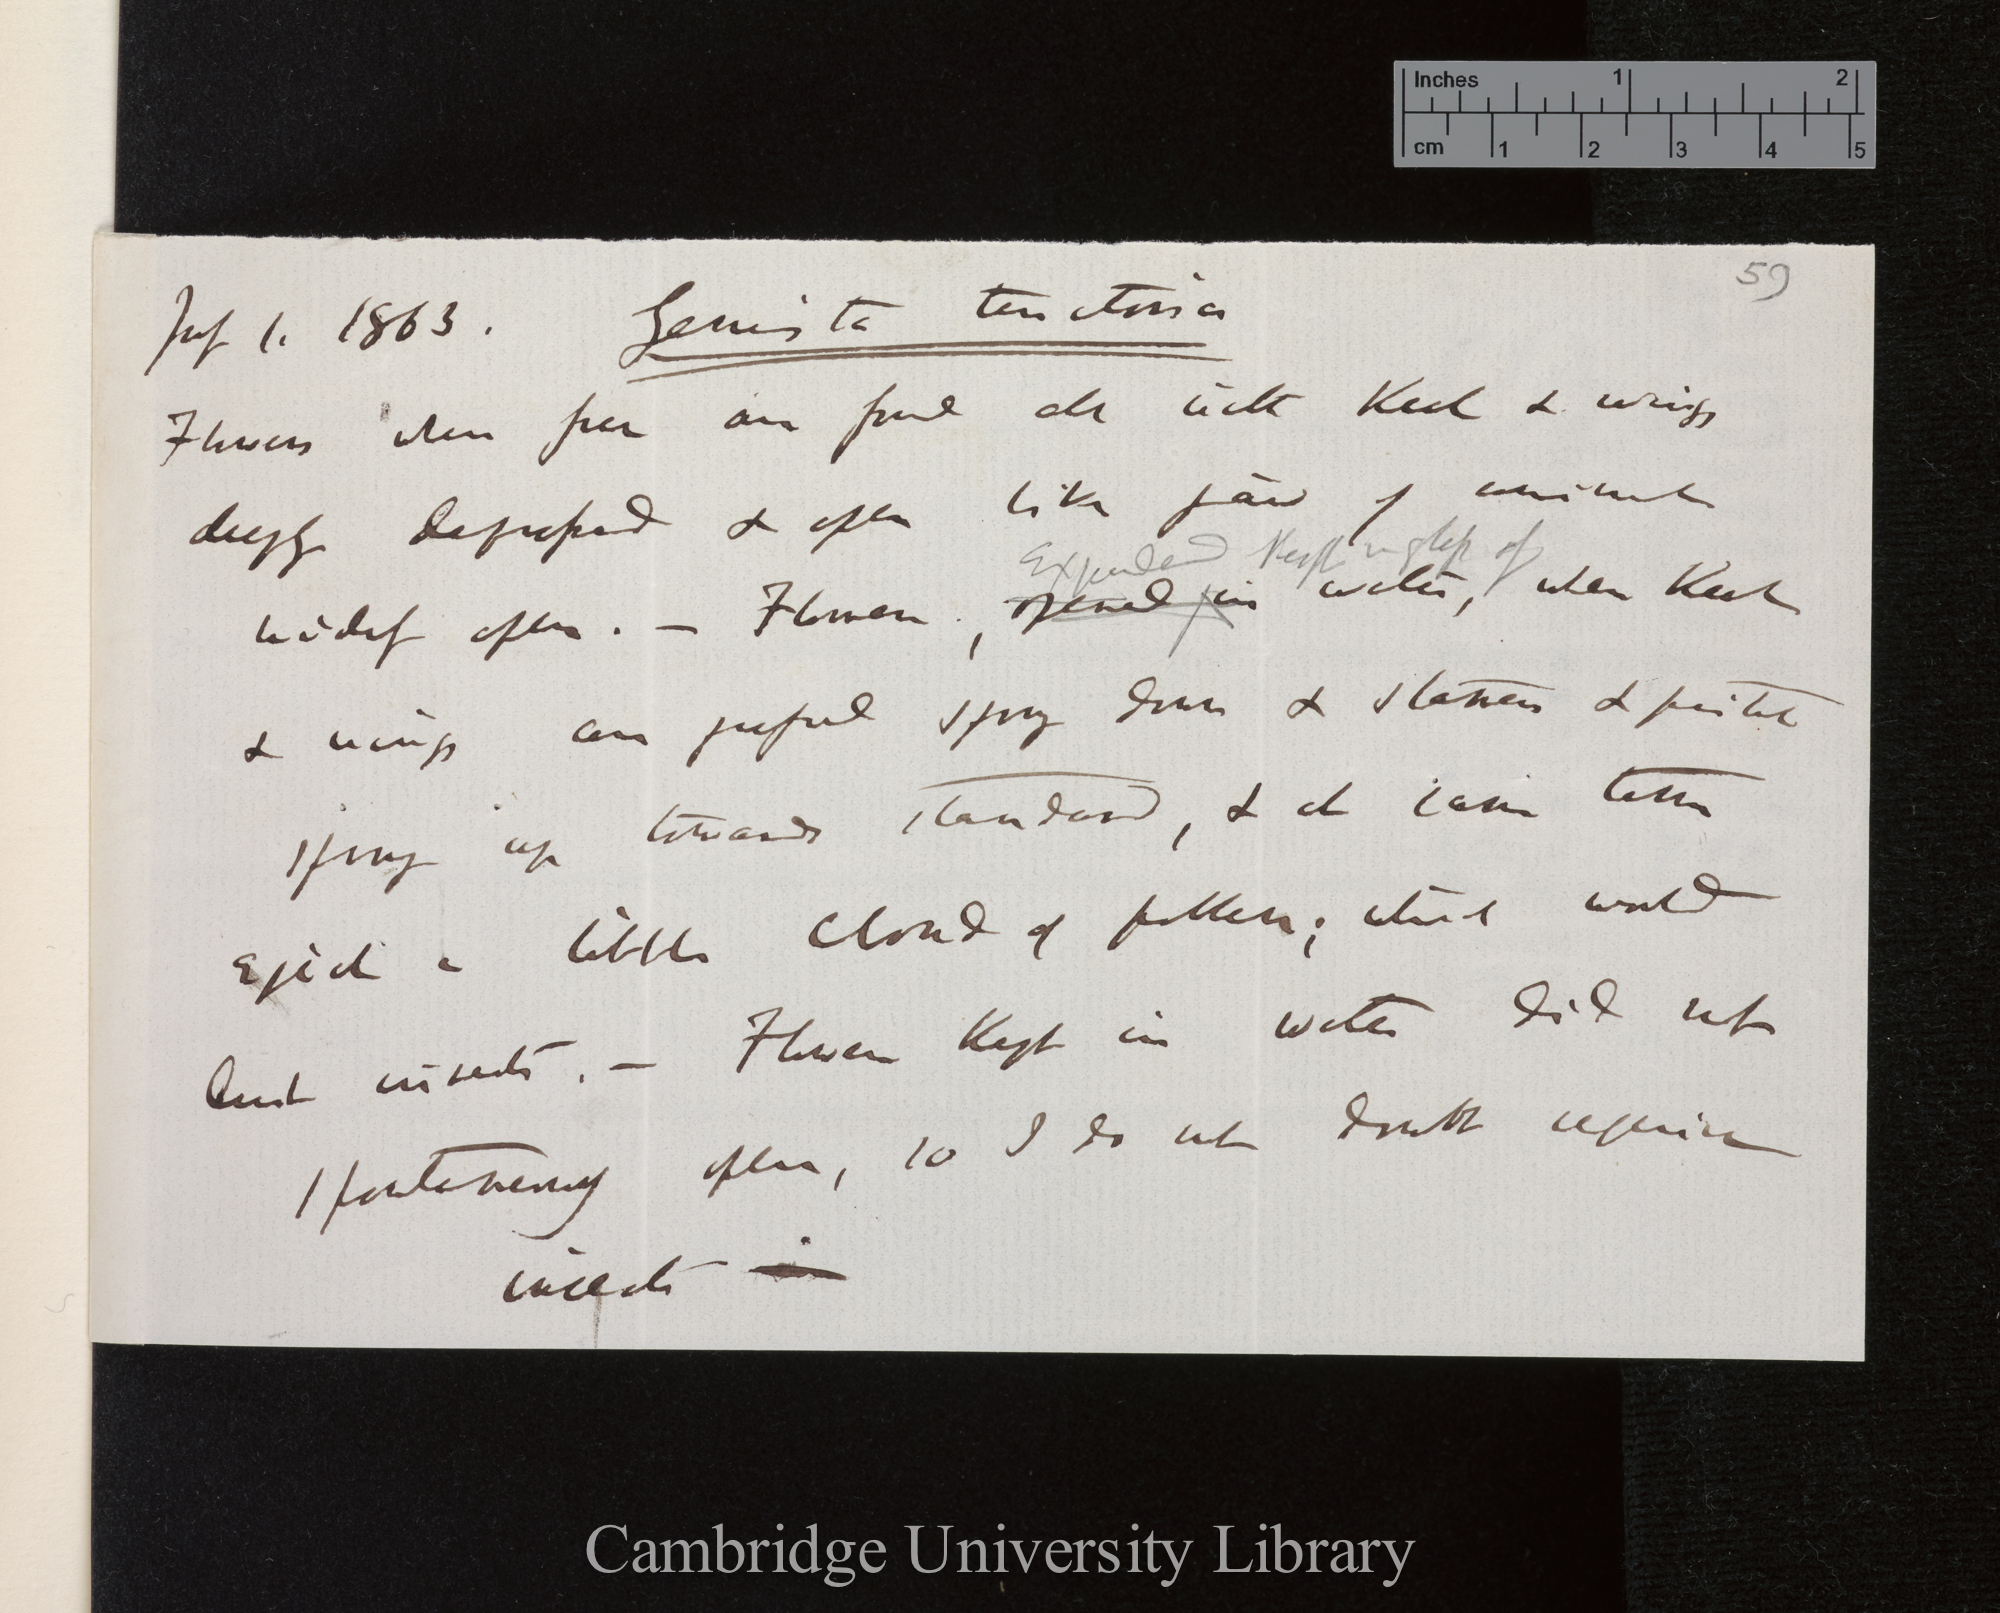 Inches 1 2
cm 1 2 3 4 5
59
July 1. 1863. Genista tinctoria
Flowers when free are found all with Keel & wings
deeply depressed & often like jaw of
widely open. — Flowers, opened in water, when Keel
Expanded Kept in glass of
& wings are spring down & stamens & pistil
spring up towards standard, & at same time
eject a little cloud of pollen; which would
dust insects. — Flowers Kept in water did not
spontaneously open, so I do not doubt require
insects in
Cambridge University Library